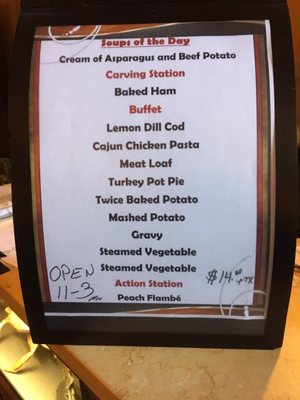 Soups of the Day
Cream of Asparagus and Beef Potato
Carving Station
Baked Ham
Buffet
Lemon Dill Cod
Cajun Chicken Pasta
Meat Loaf
Turkey Pot Pie
Twice Baked Potato
Mashed Potato
Gravy
Steamed Vegetable
Steamed Vegetable
Action Station
Peach Flambé
OPEN
11-3
$14.00 + TX